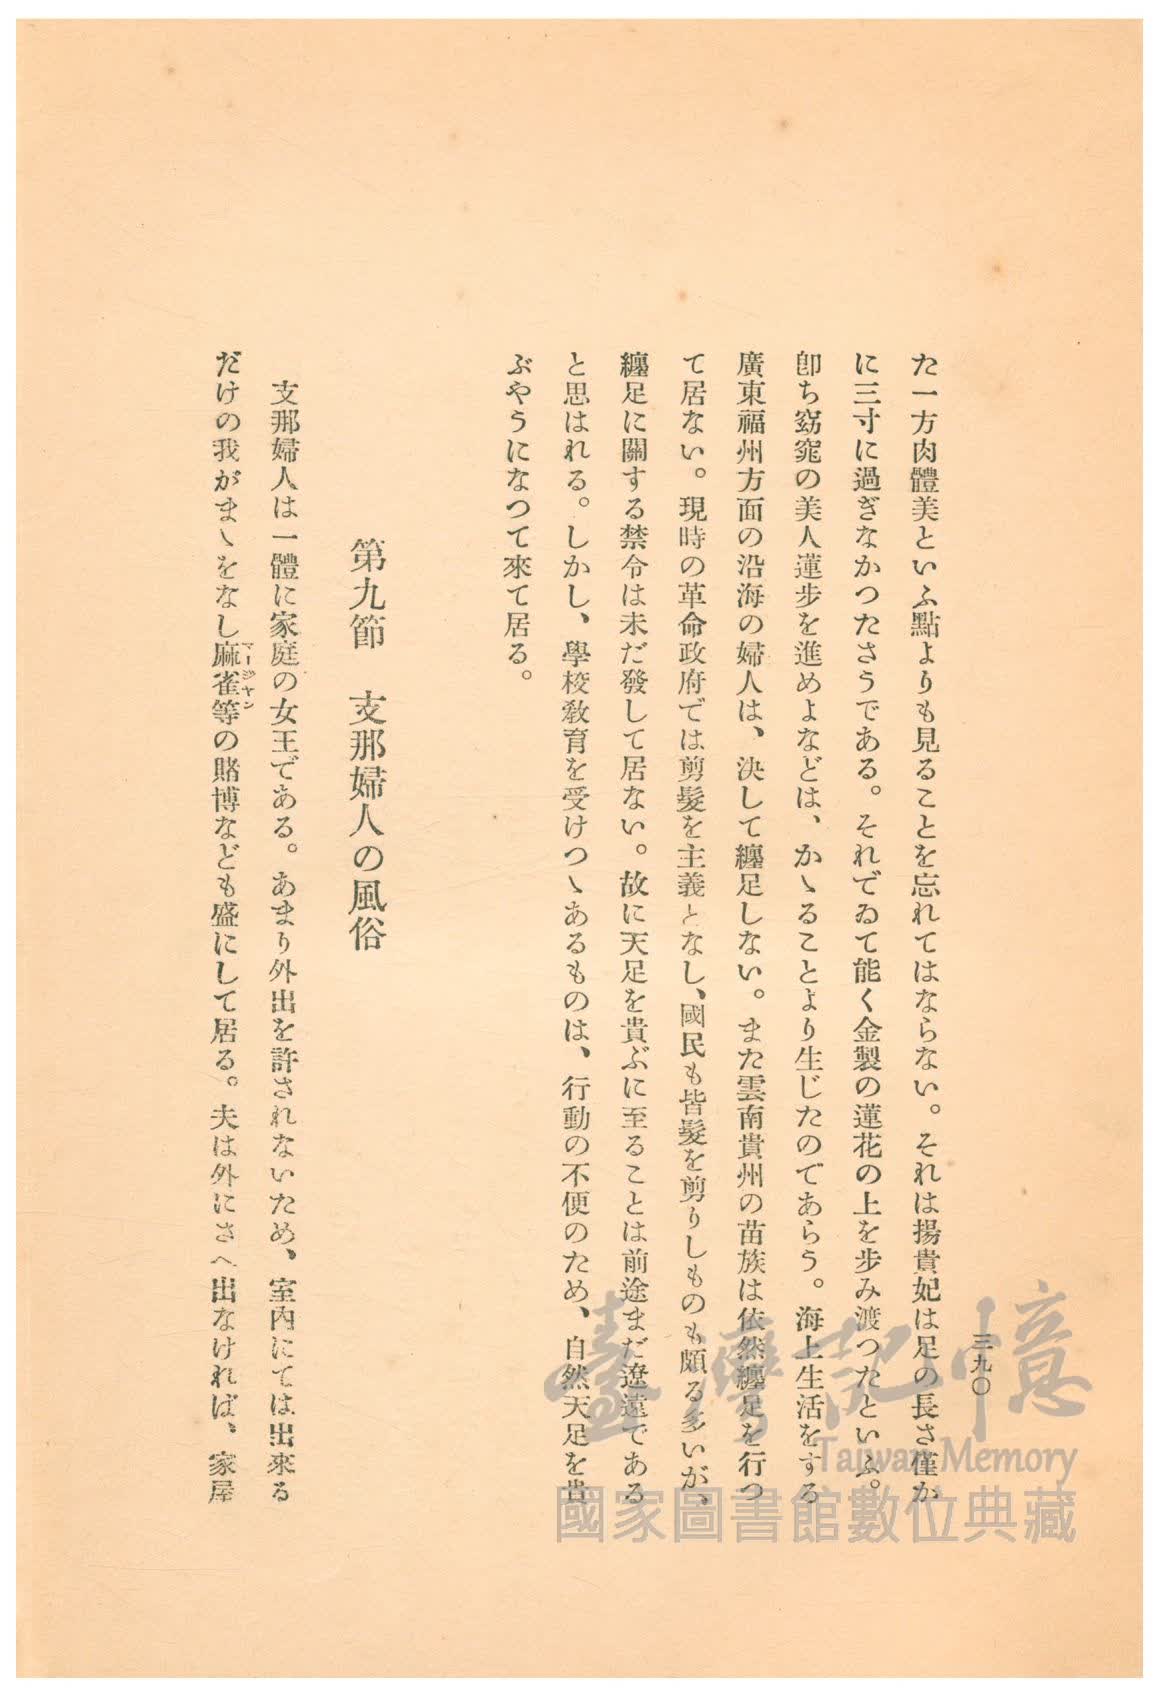 三九〇
た一方肉體美といふ點よりも見ることを忘れてはならない。それは揚貴妃は足の長さ僅か
に三寸に過ぎなかつたさうである。それでゐて能く金製の蓮花の上を步み渡つたといふ。
卽ち窈窕の美人蓮步を進めよなどは、かゝることより生じたのであらう。海上生活をする
廣東福州方面の沿海の婦人は、決して纏足しない。また雲南貴州の苗族は依然纏足を行つ
て居ない。現時の革命政府では剪髮を主義となし、國民も皆髮を剪りしものも頗る多いが、
纏足に關する禁令は未だ發して居ない。故に天足を貴ぶに至ることは前途まだ遼遠である
と思はれる。しかし、學校敎育を受けつゝあるものは、行動の不便のため、自然天足を貴
ぶやうになつて來て居る。
第九節 支那婦人の風俗
支那婦人は一體に家庭の女王である。あまり外出を許されないため、室內にては出來る
だけの我がまゝをなし麻雀等の賭博なども盛にして居る。夫は外にさへ出なければ、家屋
マージヤン
臺灣記憶
Taiwan Memory
國家圖書館數位典藏